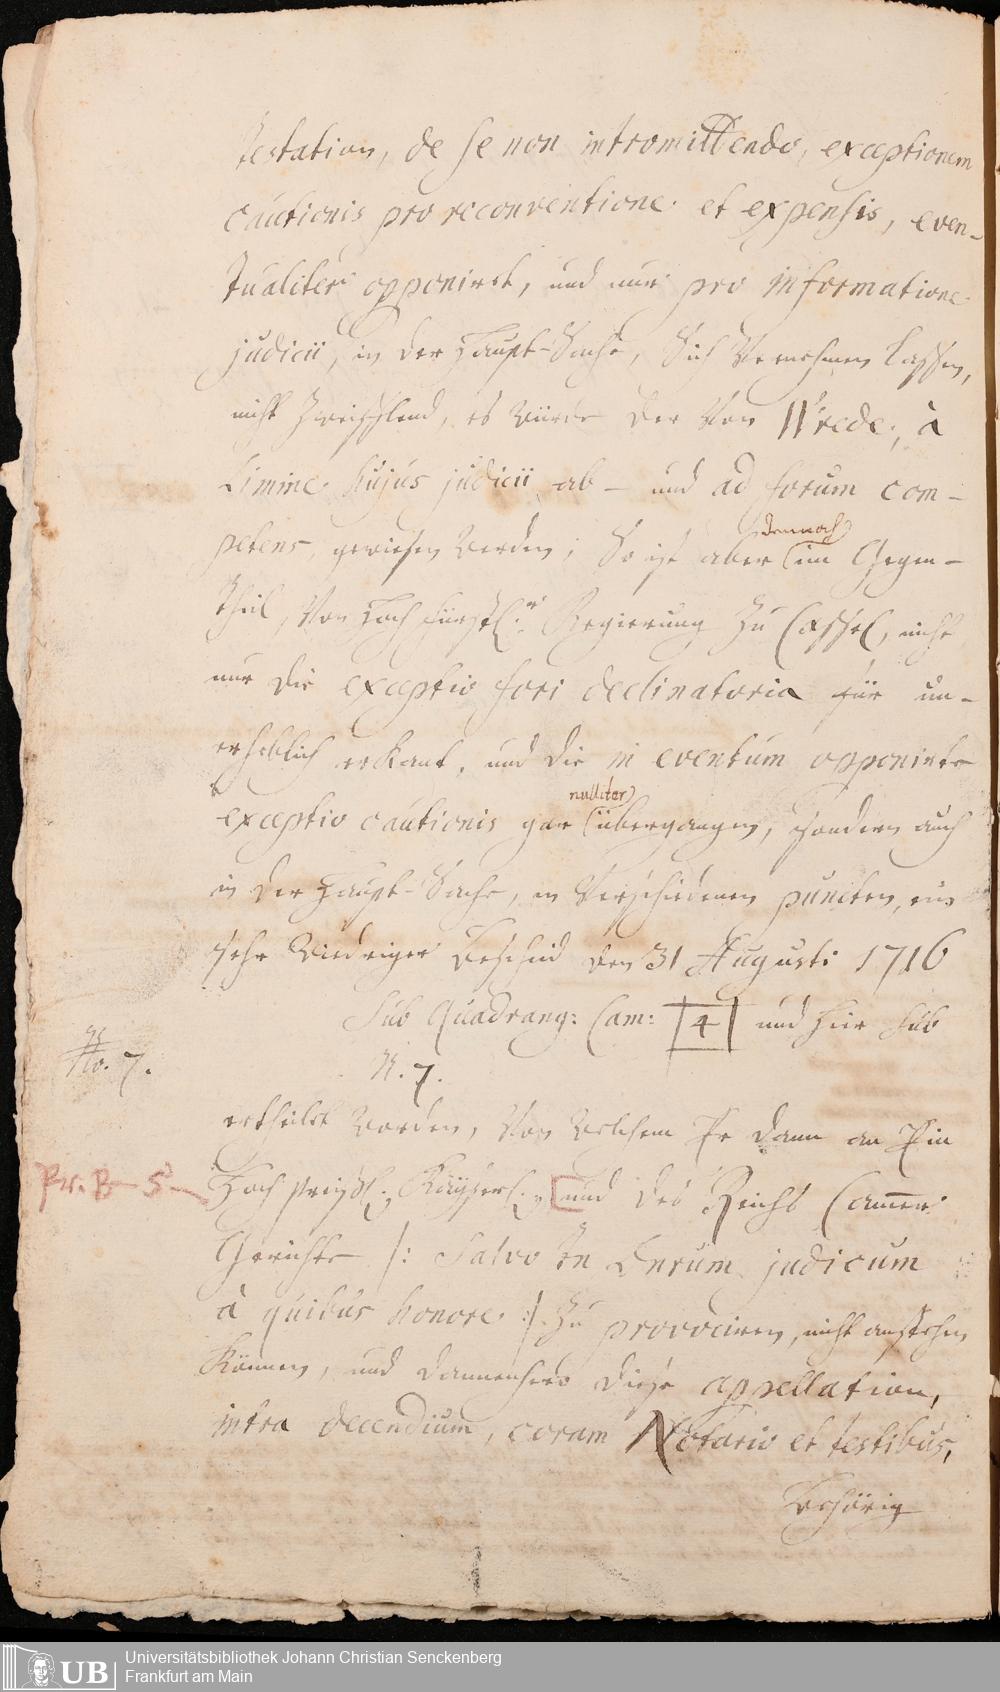 testation, de se non intromittendo, exceptionem
cautionis pro reconventione et expensis, even-
tualiter opponirt, und nur pro informatione
judicii, in der Haupt-Sache, Sich Vernehmen lassen,
nicht Zweifflend, es würde der Von Wrede, à
Limine hujus judicii ab- und ad forum com-
petens, gewiesen werden; So ist aber (im Gegen-
dennoch)
theil, Von Hochfürstl.r Regierung zu Cassel, nicht
nur die exceptio fori declinatoria für un-
erheblich erkant, und die in eventum opponirte
nulliter)
exceptio cautionis gar (übergangen, sondern auch
in der Haupt-Sache, in Verschiedenen puncten, ein
sehr wiedriger Bescheid den 31 Augusti 1716
Sub Quadrang: Cam: [4] und hier sub
N. 7.
No. 7.
ertheilet worden, Von welchem Er dann an Ein
Pr. B- 5-
Hochpreyßl. Kayßerl. [und des Reichs Cammer
Gerichte /: Salvo Dnrum judicum
à quibus honore :/ Zu provociren, nicht anstehen
können, und dannenhero diese appellation,
intra decendium, coram Notario et testibus,
Behörig
Universitätsbibliothek Johann Christian Senckenberg
UB Frankfurt am Main